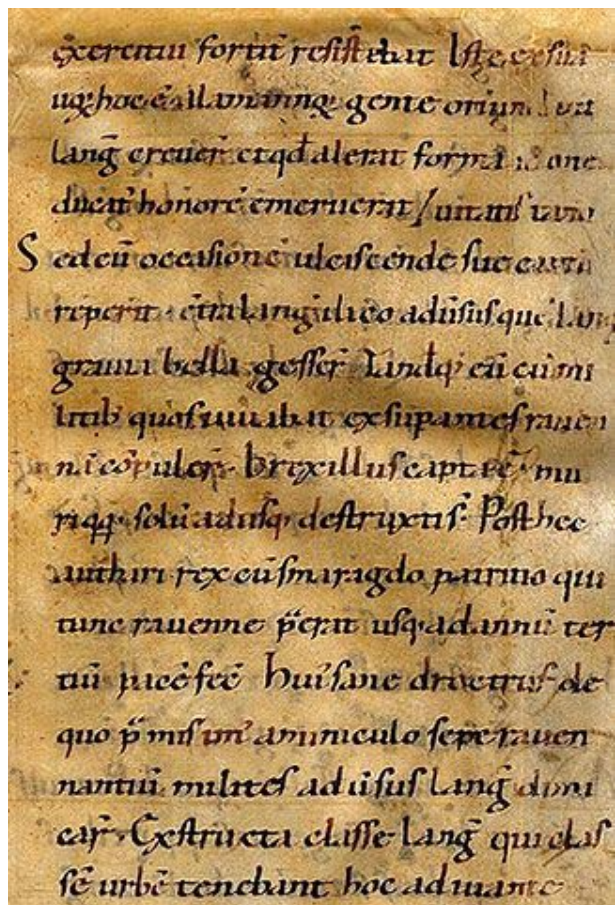 exercitui fortit̄ resistebat Iste ex sua
uoꝝ hoc ē alamannoꝝ gente oriund
lang̃ creuer̄ et qđ alerat forma
ducat᷒ honorē emeruerat
Sed cū occasionē ulciscende sue
reperit c̄tra lang̃ ilico aduersusque lang
grauia bella gesser̄ Tandē
litib᷒ quos iuuabat exsupantes rauen
nā cōpuler̄ · brexillus capta ē · mu
riqꝫ solū adusqꝫ destructi s̄ · Post hec
authari rex cū smaragdo patritio qui
tunc rauenne p̄erat usqꝫ ad annū ter
tiū pacē fec̄ hui᷒ sane droctrufde
quo p̄misim᷒ aminiculo sepe rauen
nantiū milites aduersus lang̃ dimi
car̄ · Exstructa classe lang̃ qui clas
sē urbē tenebant hoc adiuuante